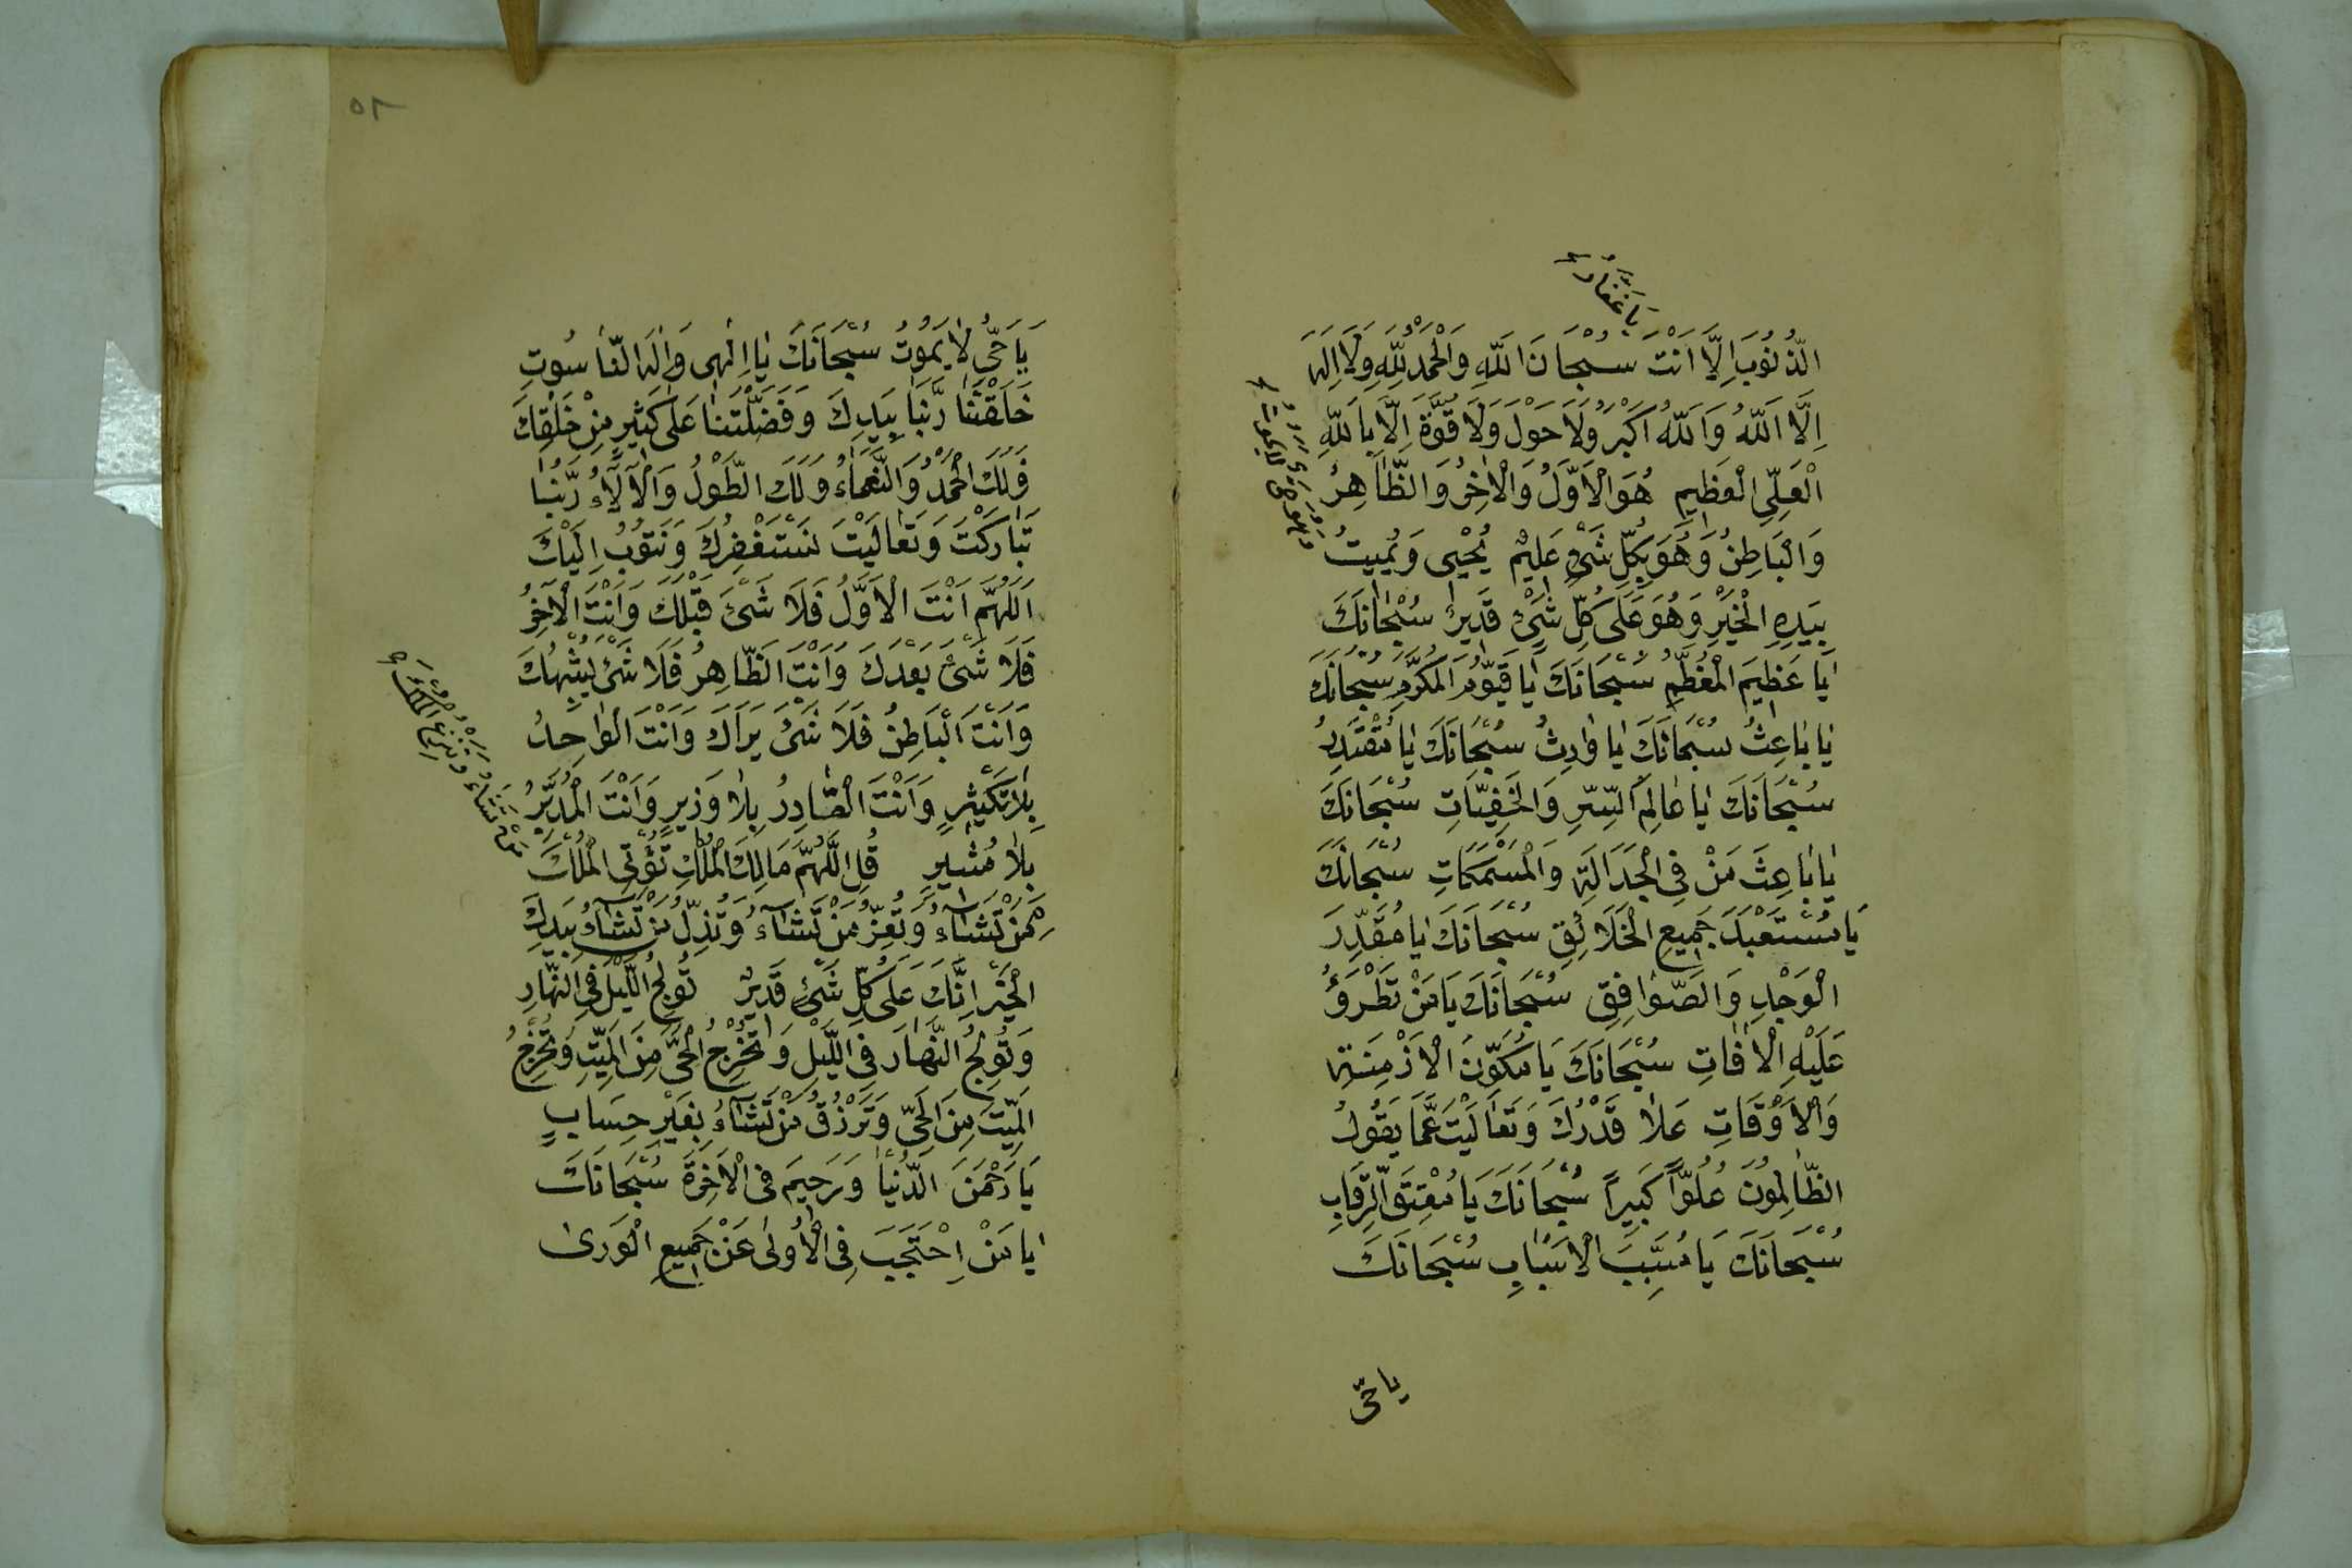 يَا غَفَّارُ
الذُّنُوبَ اِلَّا اَنْتَ سُبْحَانَ اللّٰهِ وَالْحَمْدُ لِلّٰهِ وَلَا اِلٰهَ
اِلَّا اللّٰهُ وَاللّٰهُ اَكْبَرُ وَلَا حَوْلَ وَلَا قُوَّةَ اِلَّا بِاللّٰهِ
الْعَلِيِّ الْعَظِيمِ هُوَ الْاَوَّلُ وَالْاٰخِرُ وَالظَّاهِرُ
وَالْبَاطِنُ وَهُوَ بِكُلِّ شَيْءٍ عَلِيْمٌ يُحْيِى وَيُمِيتُ
وَهُوَ حَيٌّ لَا يَمُوتُ
بِيَدِهِ الْخَيْرِ وَهُوَ عَلٰى كُلِّ شَيْءٍ قَدِيرٌ سُبْحَانَكَ
يَا عَظِيمَ الْمُعَظَّمِ سُبْحَانَكَ يَا قَيُّومَ الْمُكَرَّمِ سُبْحَانَكَ
يَا بَاعِثُ سُبْحَانَكَ يَا وَارِثُ سُبْحَانَكَ يَا مُقْتَدِرُ
سُبْحَانَكَ يَا عَالِمَ السِّرِّ وَالْخَفِيَّاتِ سُبْحَانَكَ
يَا بَاعِثَ مَنْ فِى الْجَدَالَةِ وَالْمَسْمَكَاتِ سُبْحَانَكَ
يَا مُسْتَعْبِدَ جَمِيعِ الْخَلَائِقِ سُبْحَانَكَ يَا مُقَدِّرَ
الْوَجْدِ وَالصَّوَافِقِ سُبْحَانَكَ يَا مَنْ تَطْرَؤُ
عَلَيْهِ الْاٰفَاتِ سُبْحَانَكَ يَا مُكَوِّنَ الْاَزْمِنَةِ
وَالْاَوْقَاتِ عَلَا قَدْرُكَ وَتَعَالَيْتَ عَمَّا يَقُولُ
الظَّالِمُونَ عُلُوًّا كَبِيرًا سُبْحَانَكَ يَا مُعْتِقَ الرِّقَابِ
سُبْحَانَكَ يَا مُسَبِّبَ الْاَسْبَابِ سُبْحَانَكَ
يا حَيّ
٥٢
يَا حَيُّ لَا يَمُوتُ سُبْحَانَكَ يَا اِلٰهِى وَاِلٰهَ النَّاسُوتِ
خَلَقْتَنَا رَبَّنَا بِيَدِكَ وَفَضَّلْتَنَا عَلٰى كَثِيرٍ مِنْ خَلْقِكَ
فَلَكَ الْحَمْدُ وَالنَّعْمَاءُ وَلَكَ الطَّوْلُ وَالْاٰلَاءُ رَبَّنَا
تَبَارَكْتَ وَتَعَالَيْتَ نَسْتَغْفِرُكَ وَنَتُوبُ اِلَيْكَ
اَللّٰهُمَّ اَنْتَ الْاَوَّلُ فَلَا شَيْءَ قَبْلَكَ وَاَنْتَ الْاٰخِرُ
فَلَا شَيْءَ بَعْدَكَ وَاَنْتَ الظَّاهِرُ فَلَا شَيْءَ يُشْبِهُكَ
وَاَنْتَ الْبَاطِنُ فَلَا شَيْءَ يَرَاكَ وَاَنْتَ الْوَاحِدُ
بِلَا تَكْثِيرٍ وَاَنْتَ الْقَادِرُ بِلَا وَزِيرٍ وَاَنْتَ الْمُدَبِّرُ
بِلَا مُشِيرٍ قُلِ اللّٰهُمَّ مَالِكَ الْمُلْكِ تُؤْتِى الْمُلْكَ
مَنْ تَشَاءُ وَتَنْزِعُ الْمُلْكَ
مِمَّنْ تَشَاءُ وَتُعِزُّ مَنْ تَشَاءُ وَتُذِلُّ مَنْ تَشَاءُ بِيَدِكَ
الْخَيْرُ اِنَّكَ عَلٰى كُلِّ شَيْءٍ قَدِيرٌ تُولِجُ اللَّيْلَ فِى النَّهَارِ
وَتُولِجُ النَّهَارَ فِى اللَّيْلِ وَتُخْرِجُ الْحَيَّ مِنَ الْمَيِّتِ وَتُخْرِجُ
الْمَيِّتَ مِنَ الْحَيِّ وَتَرْزُقُ مَنْ تَشَاءُ بِغَيْرِ حِسَابٍ
يَا رَحْمٰنَ الدُّنْيَا وَرَحِيمَ فِى الْاٰخِرَةِ سُبْحَانَكَ
يَا مَنْ اِحْتَجَبَ فِى الْاُولٰى عَنْ جَمِيعِ الْوَرٰى